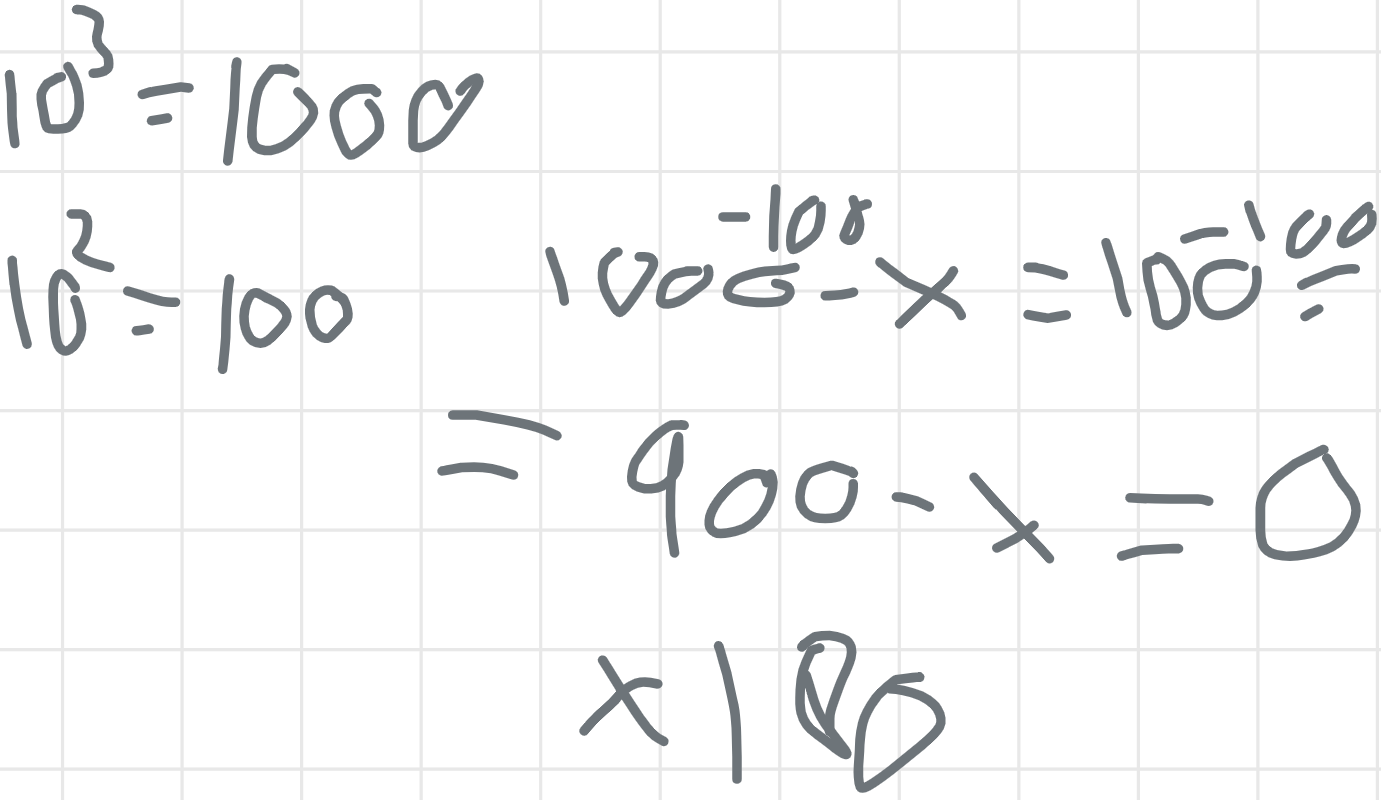 10³ = 1000
10² = 100
-100 -100
1000 - x = 100 =
= 900 - x = 0
x 180